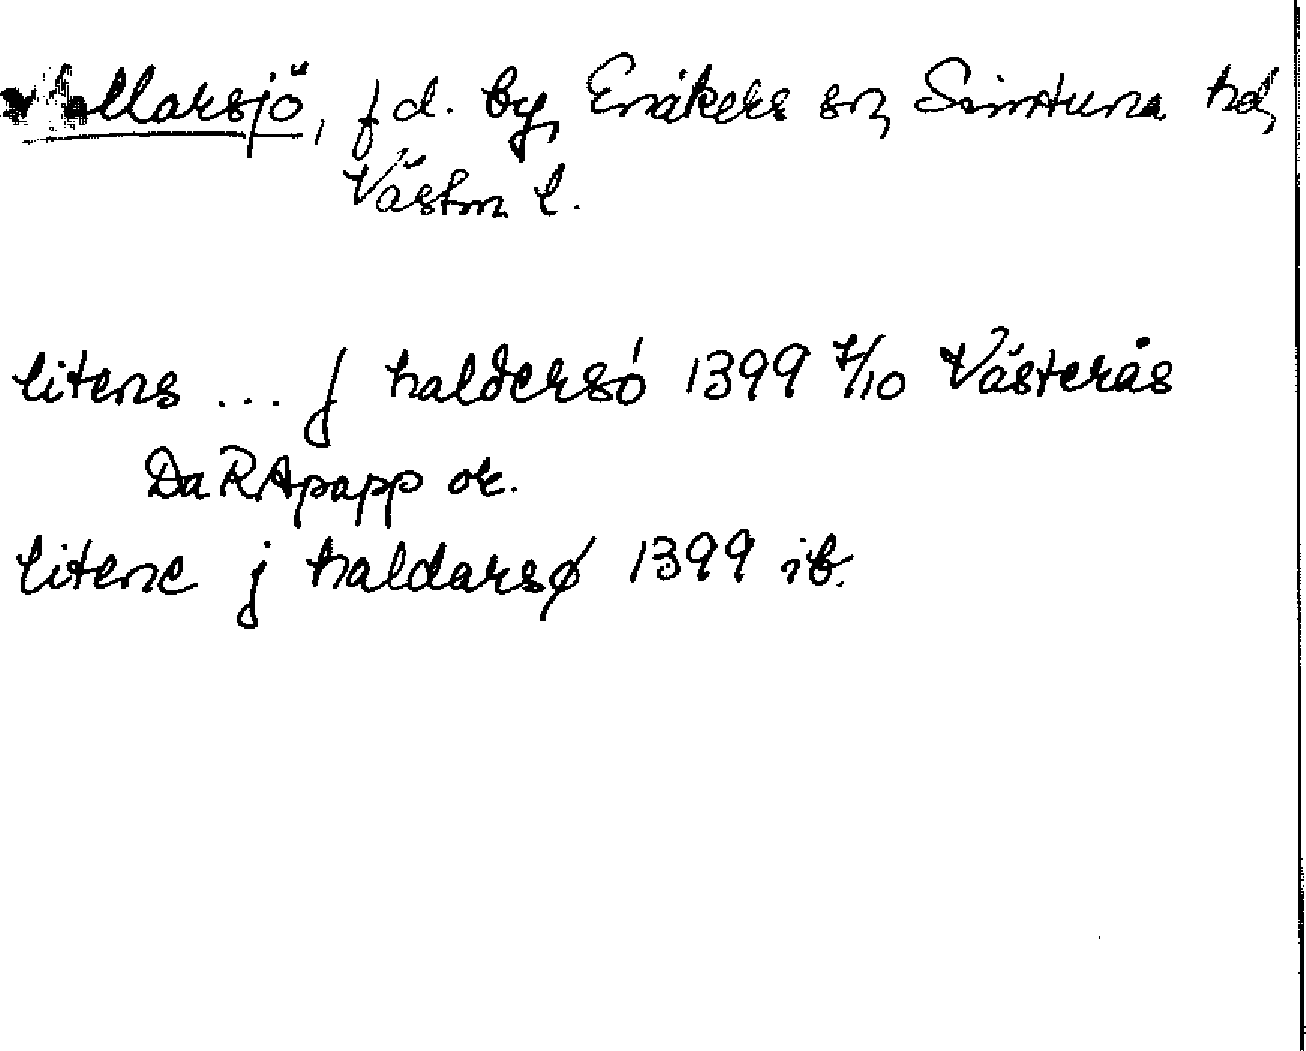 Hallarsjö, f d. by, Enåkers sn, Simtuna hd,
Västm l.
litens ... j haldersó 1399 7/10 Västerås
Da RApapp or.
litene j haldarsø 1399 ib.